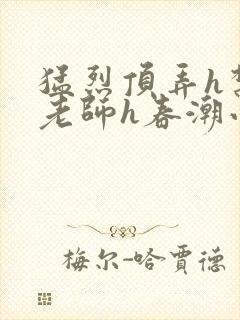 猛烈頂弄h
老師h春潮
梅尔-哈賈德